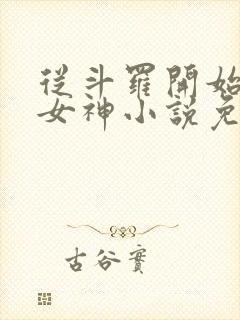 從斗羅開始
女神小說免
古谷實